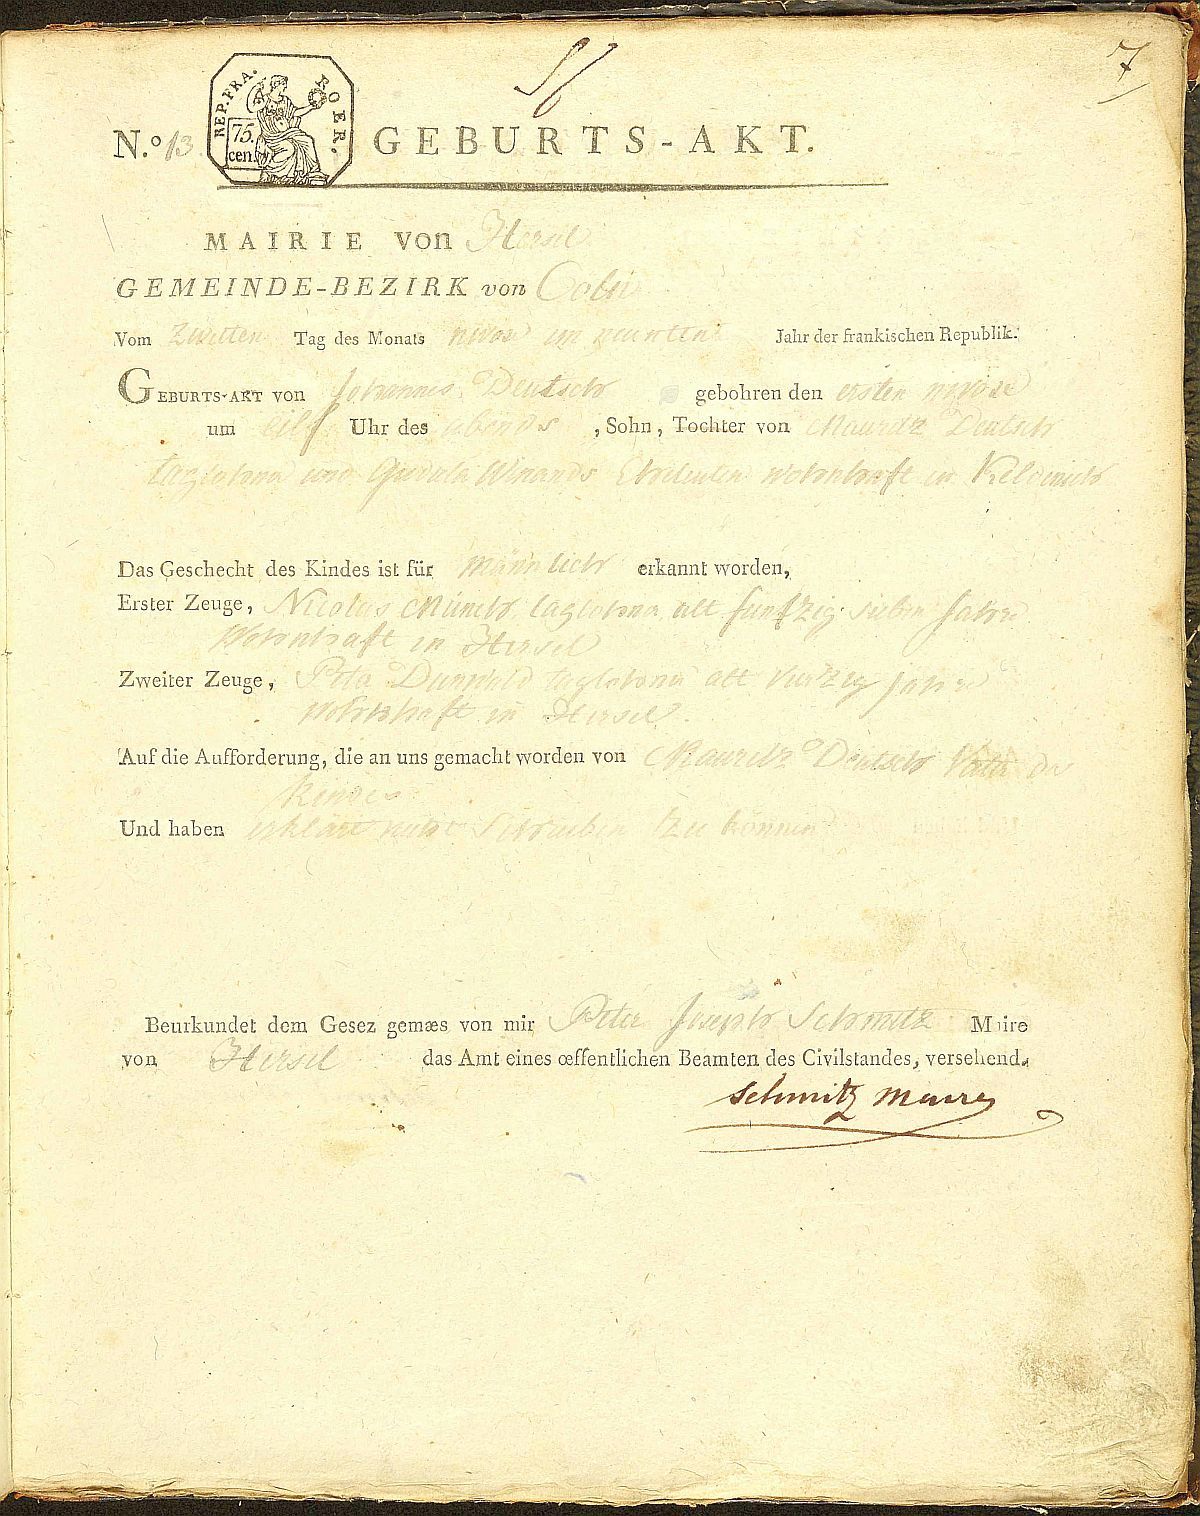 7
N.º 13 REP. FRA. ROER. 75. cen. GEBURTS-AKT.
MAIRIE von Hersel
GEMEINDE-BEZIRK von Cöln
Vom Zweiten Tag des Monats nivose im neunten Jahr der frankischen Republik.
GEBURTS-AKT von Johannes Deutsch gebohren den ersten nivose
um eilf Uhr des abends, Sohn, Tochter von Mauritz Deutsch
taglohner und Gudula Winands Eheleuten wohnhaft in Keldenich
Das Geschecht des Kindes ist für männlich erkannt worden,
Erster Zeuge, Nicolas Münch taglohner alt funfzig sieben Jahre
wohnhaft in Hersel
Zweiter Zeuge, Peter taglohner alt vierzig Jahre
wohnhaft in Hersel.
Auf die Aufforderung, die an uns gemacht worden von Mauritz Deutsch Vater des
Kindes
Und haben erklärt nicht Schreiben zu können
Beurkundet dem Gesez gemæs von mir Peter Joseph Schmitz Maire
von Hersel das Amt eines œffentlichen Beamten des Civilstandes, versehend.
Schmitz Maire